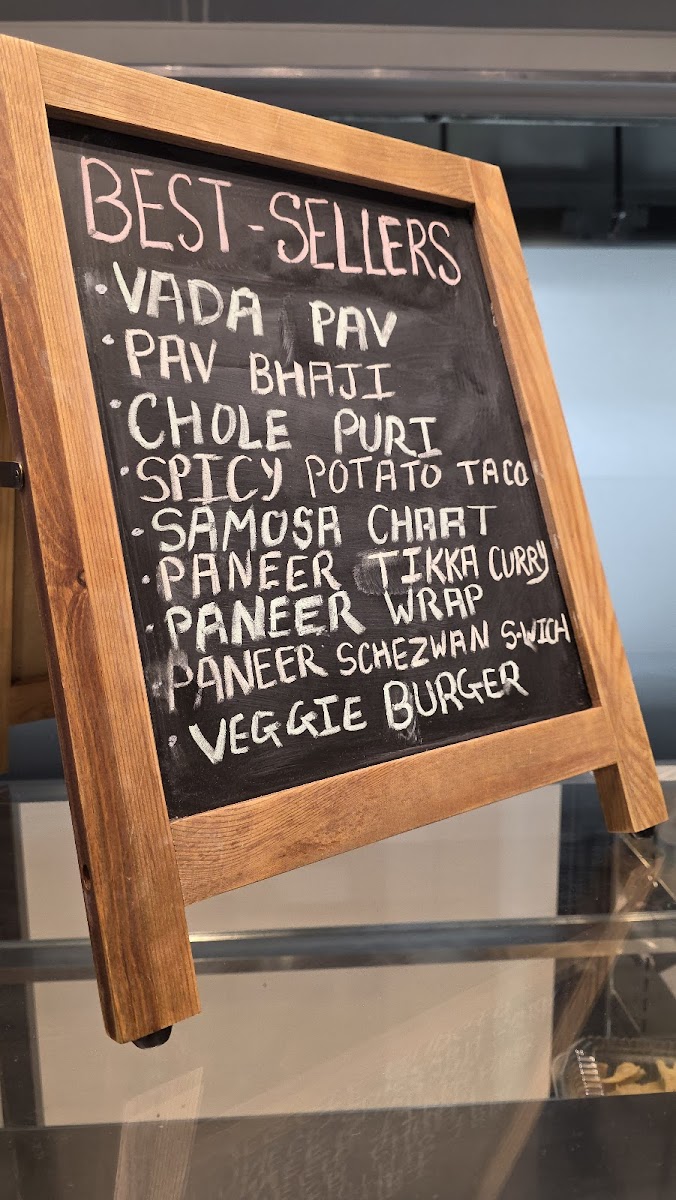 BEST-SELLERS
· VADA PAV
· PAV BHAJI
· CHOLE PURI
· SPICY POTATO TACO
· SAMOSA CHAAT
· PANEER TIKKA CURRY
· PANEER WRAP
PANEER SCHEZWAN S-WICH
· VEGGIE BURGER